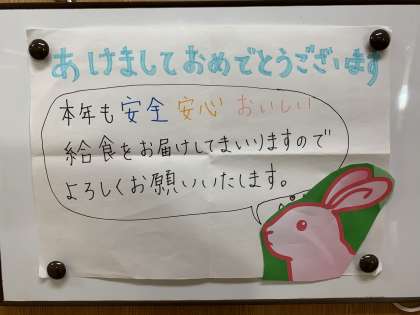 あけましておめでとうございます
本年も安全 安心 おいしい
給食をお届けしてまいりますので
よろしくお願いいたします。